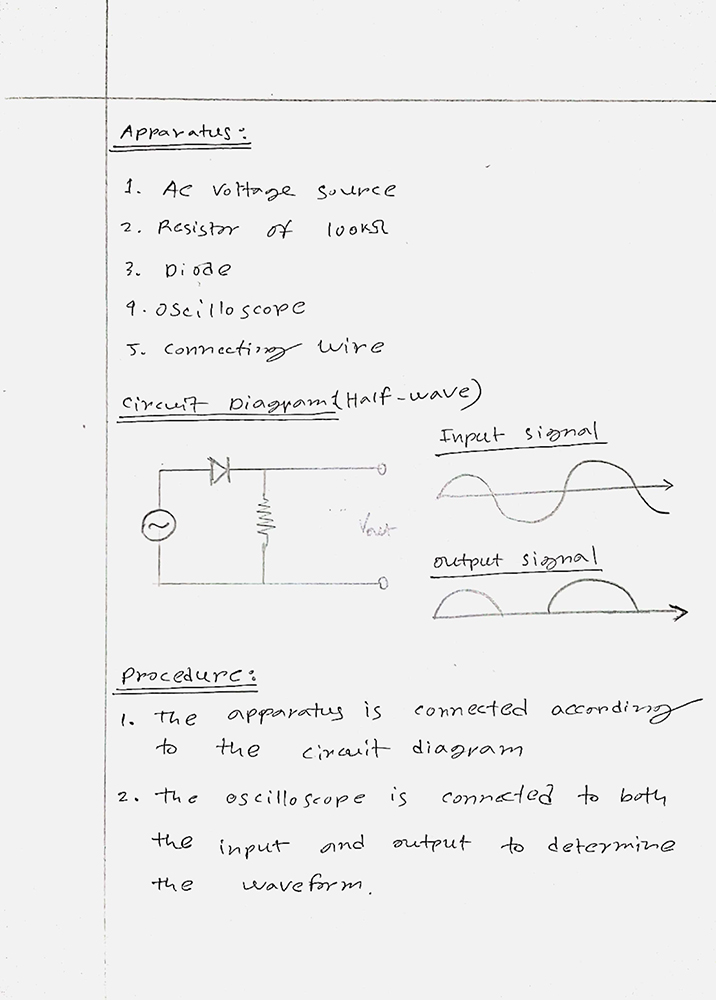 Apparatus:
1. AC voltage source
2. Resistor of 100kΩ
3. Diode
4. Oscilloscope
5. Connecting wire
Circuit Diagram: (Half-wave)
Input signal
Vout
output signal
Procedure:
1. The apparatus is connected according
to the circuit diagram
2. The oscilloscope is connected to both
the input and output to determine
the waveform.